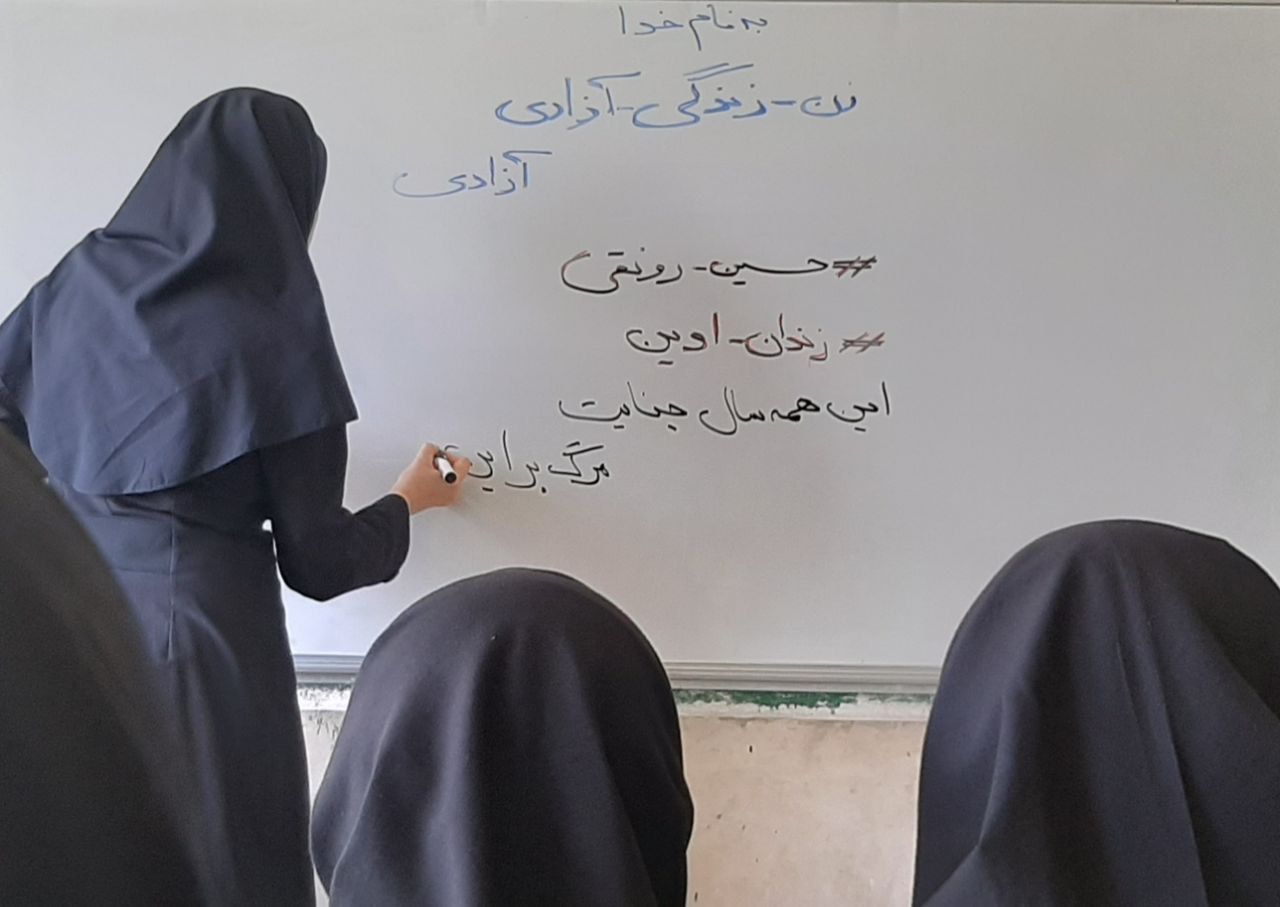 به نام خدا
زن - زندگی - آزادی
آزادی
#حسین - رونقی
#زندان - اوین
این همه سال جنایت
مرگ بر این